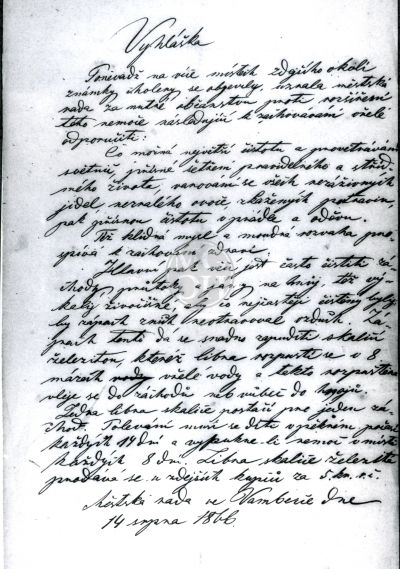 Vyhláška
Poněvadž na více místech zdejšího okolí
známky cholery se objevily, uznala městská
rada za nutné občanstvu proti rozšíření
této nemoce následující k zachovávání vřele
odporučiti:
Co možná největší čistotu a provětrávání
světnic, přísné šetření pravidelného a střid-
mého života, varování se všech nezáživných
jídel nezralého ovoce, zkažených potravin,
pak přísnou čistotu v prádle a oděvu.
Též klidná mysl a moudrá rozvaha pro-
spívá k zachování zdraví.
Hlavní pak věcí jest často čistit zá-
chody, průtoky a jámy na hnůj, též vý-
kaly živočišné by co nejčastěji čištěny byly
by zápach z nich neotravoval vzduch. Zá-
pach tento dá se snadno zapuditi skalicí
železitou, kteréž libra rozpustí se v 8
mázech vřelé vody a tekto rozpuštěna
vleje se do záchodů neb vůbec do hnojů.
Jedna libra skalice postačí pro jeden zá-
chod. Polévání musí se díti v pěkném počasí
každých 14 dní a vypukne-li nemoc v místě
každých 8 dní. Libra skalice železité
prodává se u zdejších kupců za 5 kr. r.č.
Městská rada ve Vamberce dne
14 srpna 1866.